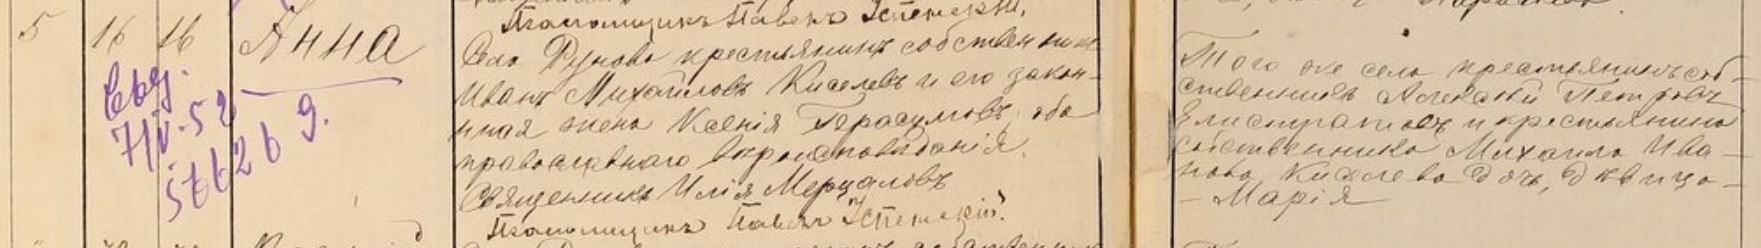 Псаломщикъ Павелъ
5 16 16 Анна
Село Дуново крестьянинъ собственникъ
Иванъ Михайловъ Киселевъ и его закон-
ная жена Ксенія Герасимовъ, оба
православнаго вѣроисповѣданія.
Священникъ Илія Мерцаловъ
Псаломщикъ Павелъ
Свид.
7/IV-52
9.
Того же села крестьянинъ соб-
ственникъ Алексѣй Петровъ
Елистратовъ и крестьянина
собственника Михаила Ива-
нова Киселева дочь, дѣвица
- Марія